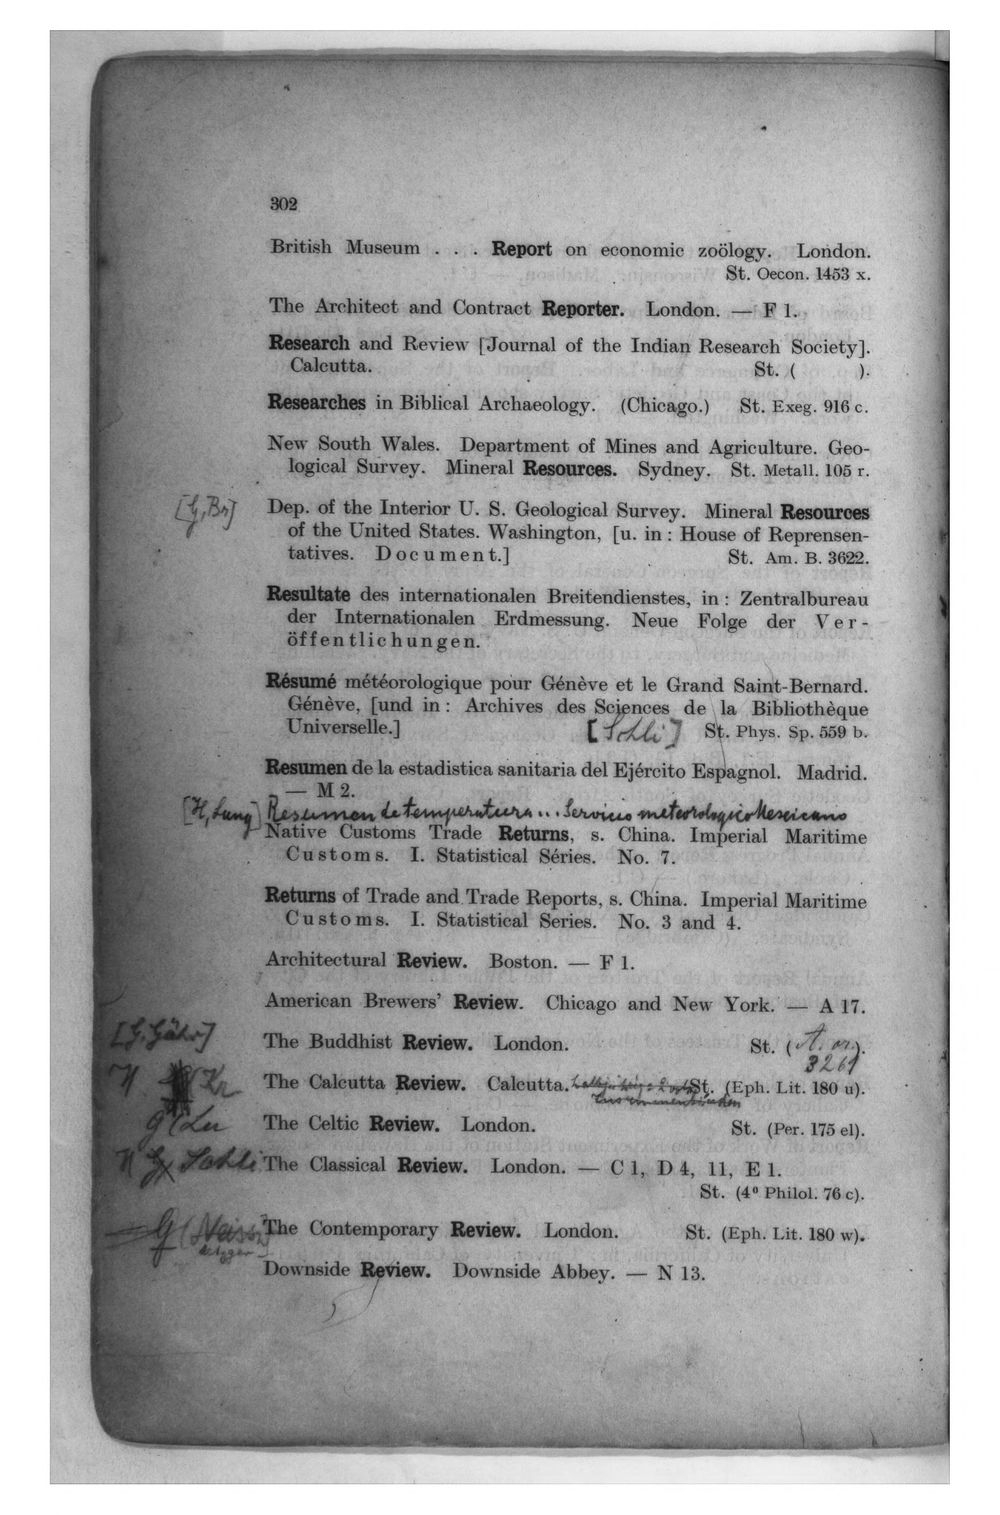 302
British Museum . . . Report on economic zoölogy. London.
St. Oecon. 1453 x.
The Architect and Contract Reporter. London. — F 1.
Research and Review [Journal of the Indian Research Society].
Calcutta. St. ( ).
Researches in Biblical Archaeology. (Chicago.) St. Exeg. 916 c.
New South Wales. Department of Mines and Agriculture. Geo-
logical Survey. Mineral Resources. Sydney. St. Metall. 105 r.
[G, Br] Dep. of the Interior U. S. Geological Survey. Mineral Resources
of the United States. Washington, [u. in : House of Reprensen-
tatives. Document.] St. Am. B. 3622.
Resultate des internationalen Breitendienstes, in : Zentralbureau
der Internationalen Erdmessung. Neue Folge der Ver-
öffentlichungen.
Résumé météorologique pour Génève et le Grand Saint-Bernard.
Génève, [und in : Archives des Sciences de la Bibliothèque
Universelle.] [Schli] St. Phys. Sp. 559 b.
Resumen de la estadistica sanitaria del Ejército Espagnol. Madrid.
— M 2.
[H, Lung] Resumen de temperatura ... Servicio meteorologico Mexicano
Native Customs Trade Returns, s. China. Imperial Maritime
Customs. I. Statistical Séries. No. 7.
Returns of Trade and Trade Reports, s. China. Imperial Maritime
Customs. I. Statistical Series. No. 3 and 4.
Architectural Review. Boston. — F 1.
American Brewers' Review. Chicago and New York. — A 17.
The Buddhist Review. London. St. (A. or.).
3261
H Kr The Calcutta Review. Calcutta. St. (Eph. Lit. 180 u).
The Celtic Review. London. St. (Per. 175 el).
The Classical Review. London. — C 1, D 4, 11, E 1.
St. (4⁰ Philol. 76 c).
The Contemporary Review. London. St. (Eph. Lit. 180 w).
Downside Review. Downside Abbey. — N 13.